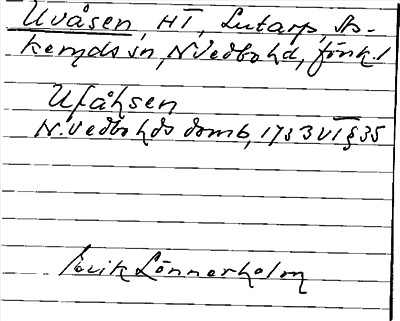 Uvåsen, HT, Lutarp, As-
keryds sn, N.Vedbo hd, jönk.l
Ufåhsen
N.Vedbo hds domb, 1733 VI § 35
Erik Lönnerholm